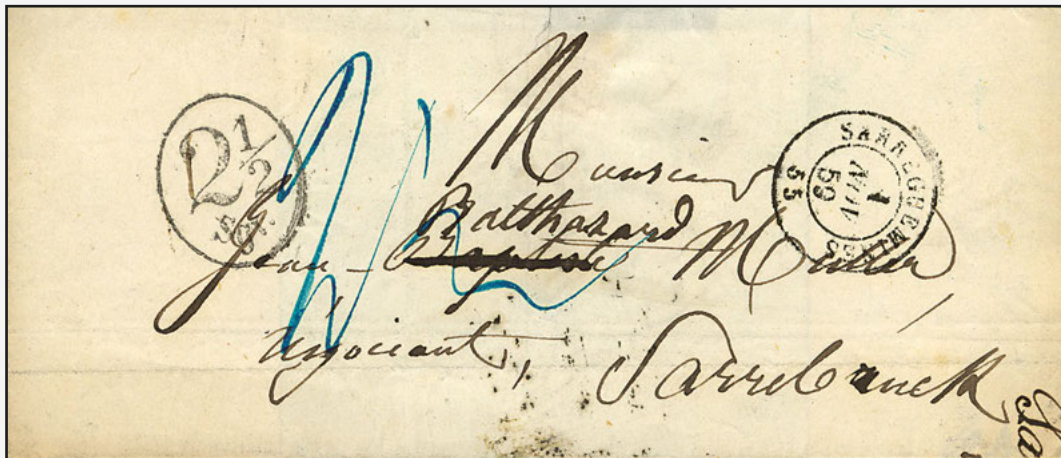 2 1/2
Sgr.
SARREGUEMINES
1
NOV
59
55
Monsieur
Balthasard
Jean - Baptiste Muller
négociant,
Sarrebruck
Sa